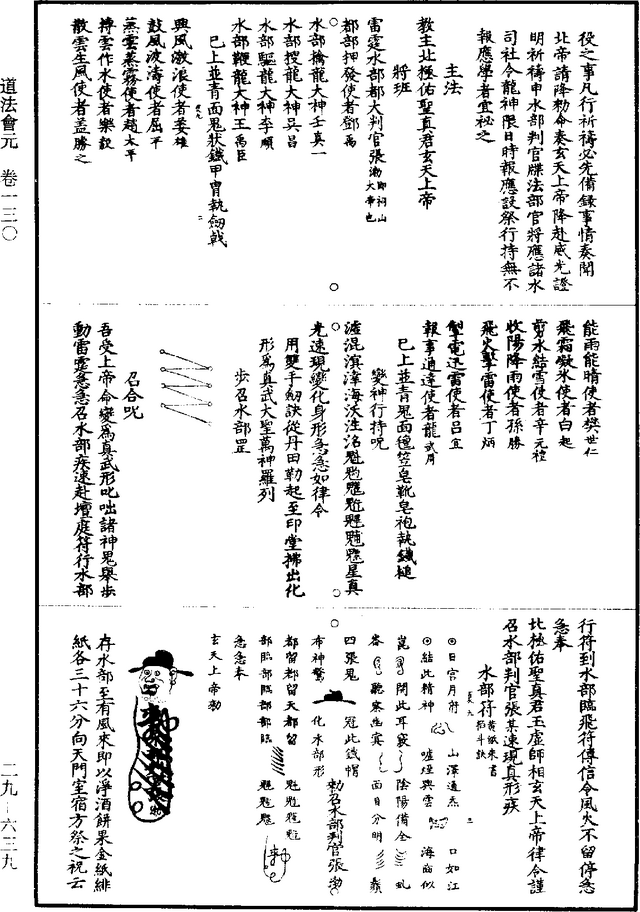 役之事凡行祈禱必先備錄事情奏聞
北帝請降勑命奏玄天上帝降赴威光證
明祈禱申水部判官牒法部官將應諸水
司社令龍神限日時報應設祭行持無不
報應學者宜秘之
主法
教主北極佑聖真君玄天上帝
將班
雷霆水部都大判官張渤即祠山大帝也
都部押發使者鄧禹
水部擒龍大神壬真一
水部搜龍大神吳昌
水部驅龍大神李順
水部鞭龍大神王禹臣
已上並青面鬼狀鐵甲冑執劒戟
興風激浪使者姜雄
鼓風波濤使者屈平
蒸雲蒸霧使者趙太平
摶雲作水使者樂毅
散雲生風使者蓋勝之
能雨能晴使者樊世仁
飛霜凝氷使者白起
剪水結雪使者辛元禮
收陽降雨使者孫勝
飛火擊雷使者丁炳
掣電迅雷使者呂宜
報事通達使者龍武周
已上並青鬼面氊笠皂靴皂袍執鐵搥
變神行持呪
濾混滇澤海沃洼洺魁䰢魓魒星真
光速現變化身形急急如律令
用雙手劒訣從丹田勒起至印堂拂出化
形為真武大聖萬神羅列
步召水部罡
召合呪
吾受上帝命變為真武形叱咄諸神鬼舉步
動雷霆急急召水部疾速赴壇庭符行水部
行符到水部臨飛符傳信令風火不留停急
急奉
北極佑聖真君玉虛師相玄天上帝律令謹
召水部判官張某速現真形疾
水部符黃紙朱書招斗訣
日宮月府 山澤通炁 口如江
結此精神 噓煙興雲 海齒似
崑 開此耳竅 陰陽備全
峇 聽察幽冥 面目分明
四張鬼 冠此鐵帽
布神驚 化水部形 勑召水部判官張渤
都畱都畱天都畱
部臨部臨部部臨
急急奉
玄天上帝勑
存水部至有風來即以淨酒餅果金紙緋
紙各三十六分向天門室宿方祭之祝云
道法會元 卷一三〇
二九—六三九